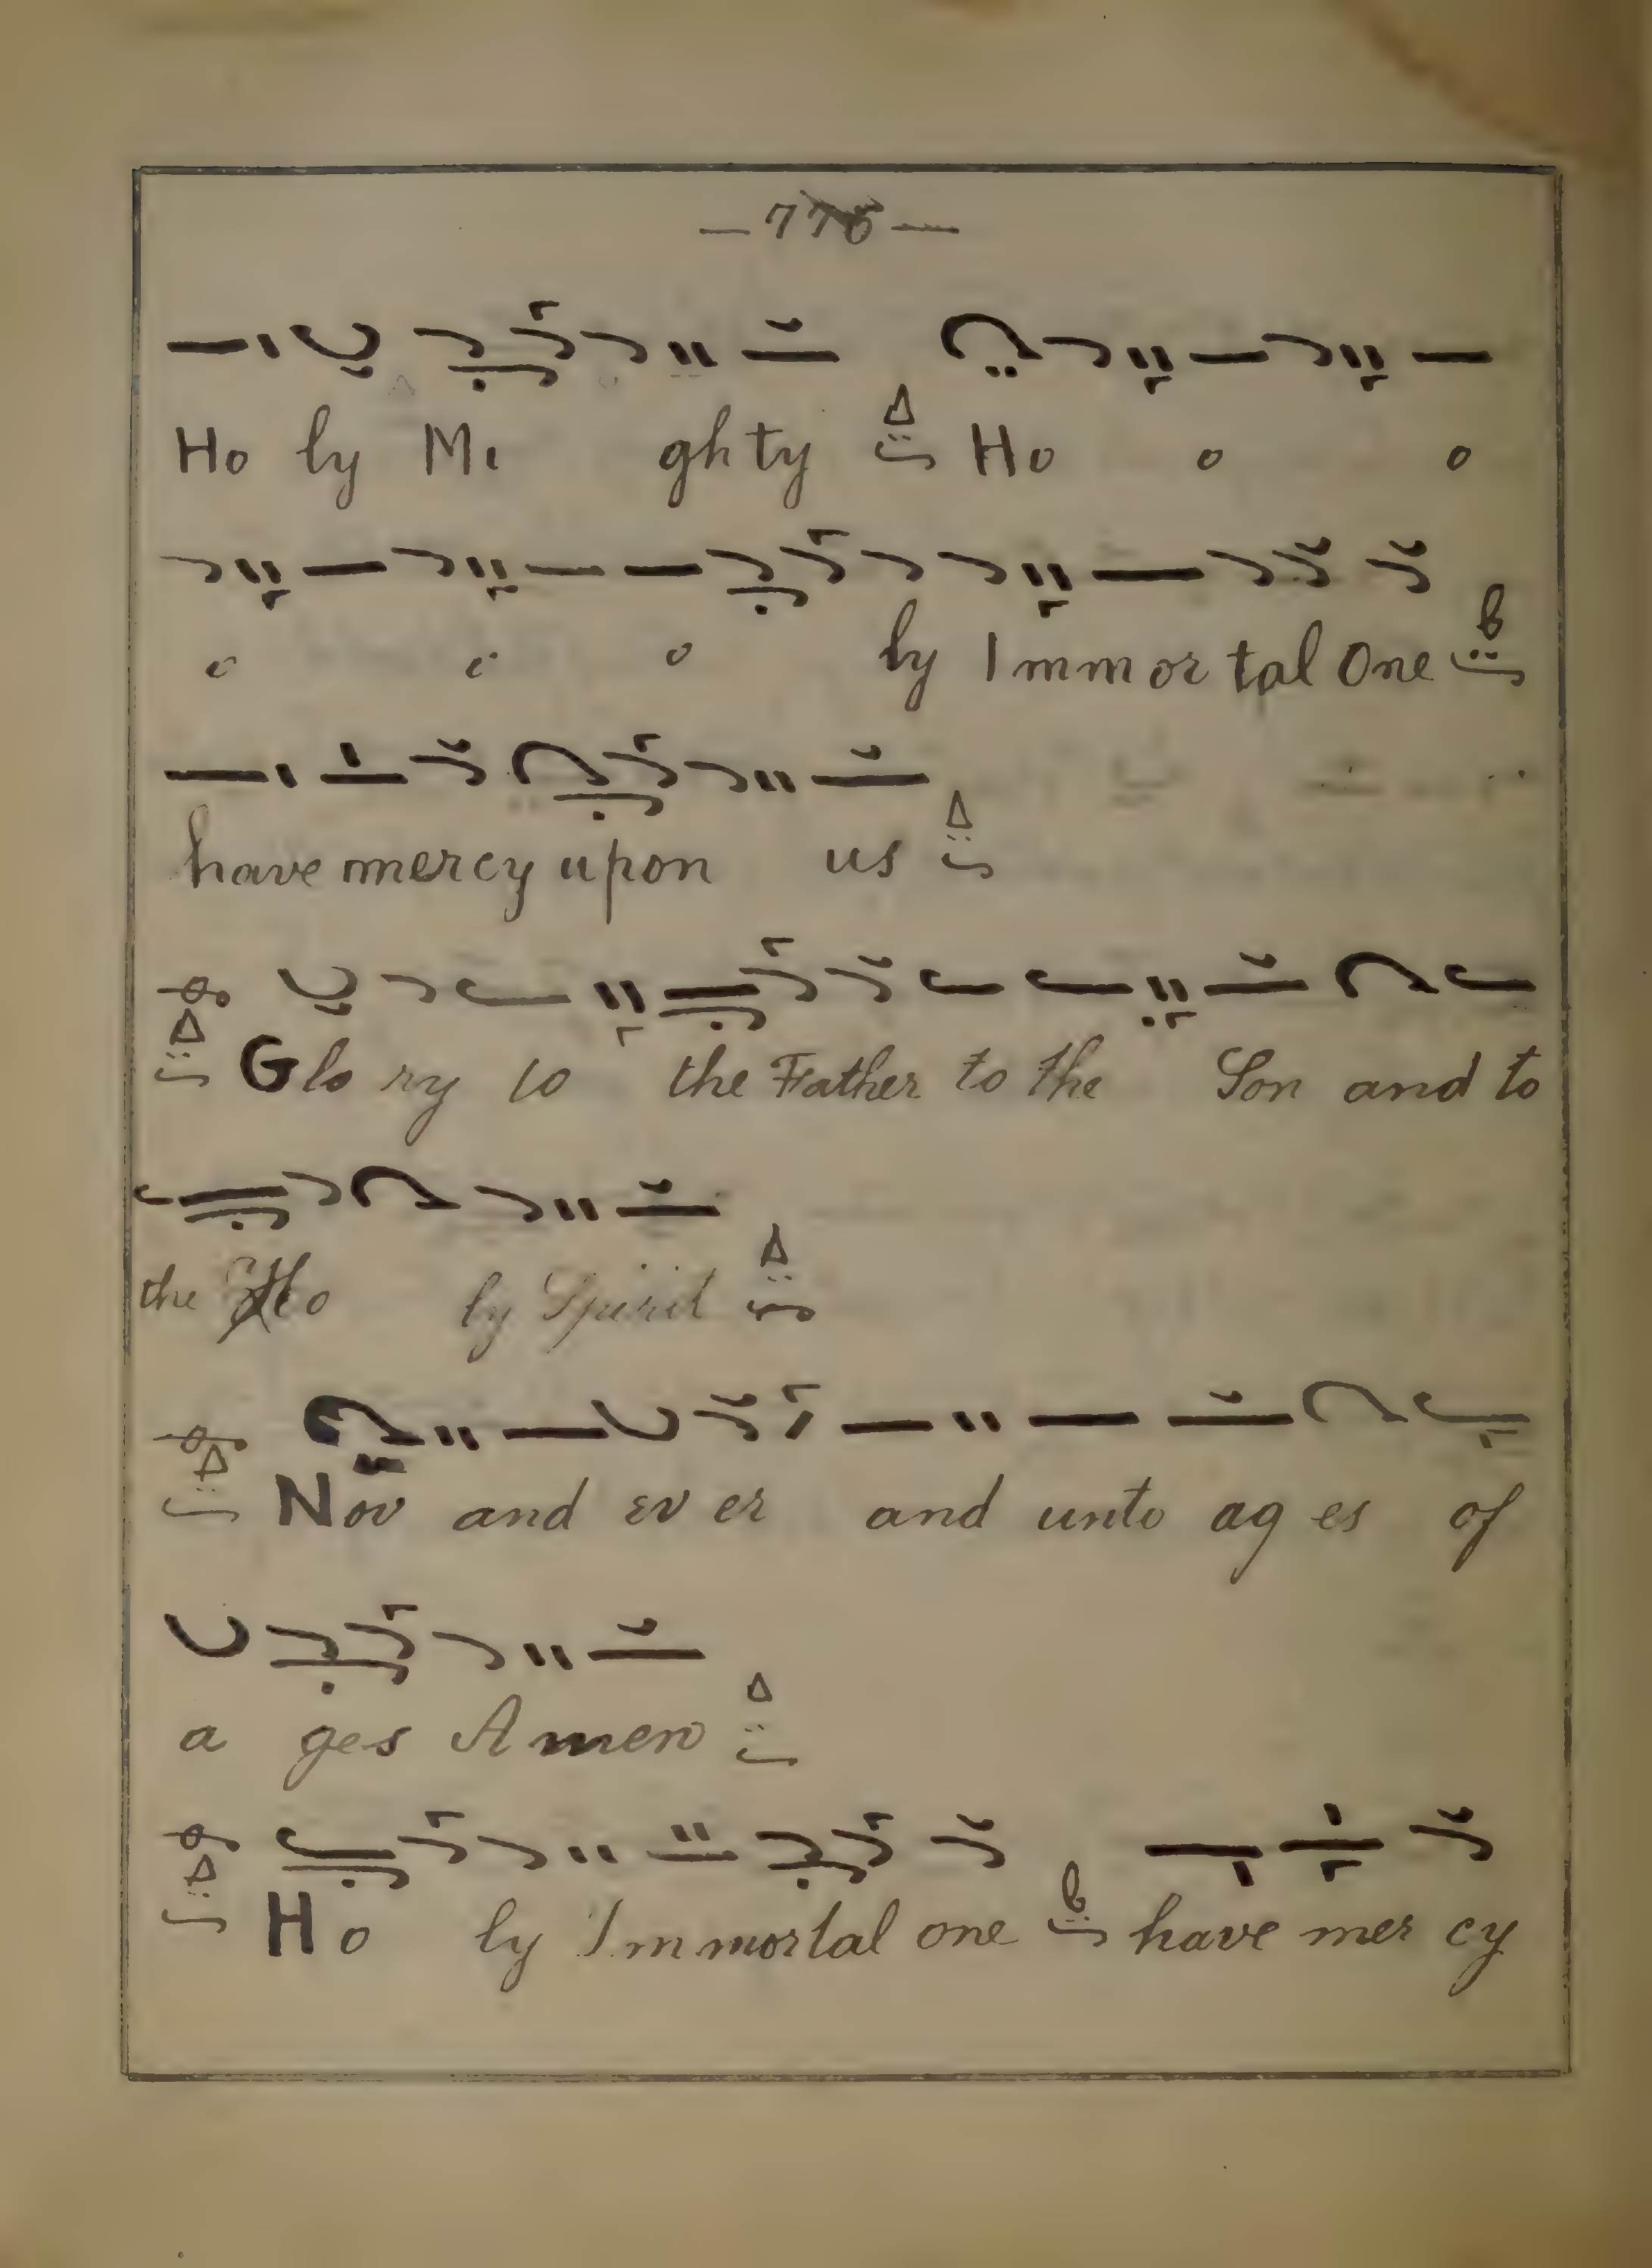 Ho ly Mi ghty Ho o o
o o o ly Immortal One
have mercy upon us
Glo ry to the Father to the Son and to
the Ho ly Spirit
Nov and ev er and unto ag es of
a ges Amen
Ho ly Immortal one have mer cy